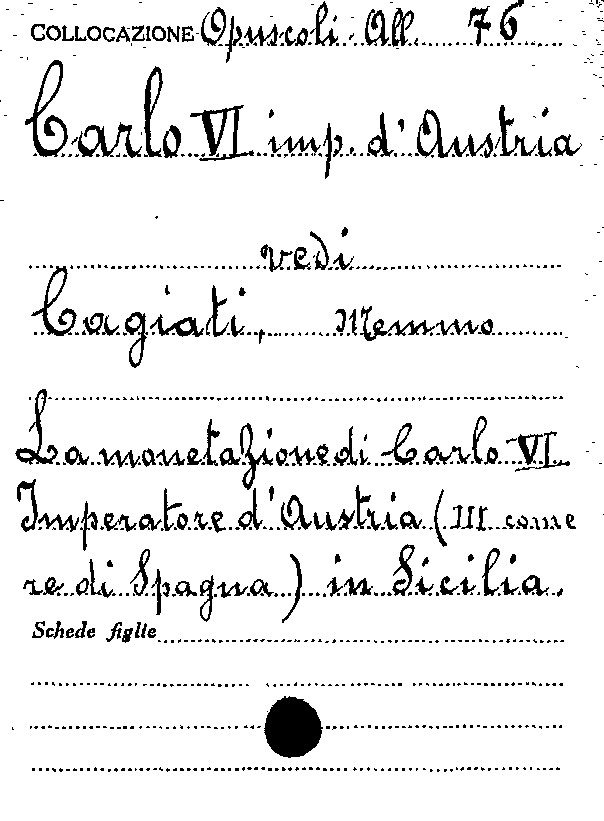 COLLOCAZIONE Opuscoli. All. 76
Carlo VI imp. d'Austria
vedi
Cagiati, Memmo
La monetazione di Carlo VI
Imperatore d'Austria (III come
re di Spagna) in Sicilia.
Schede figlie